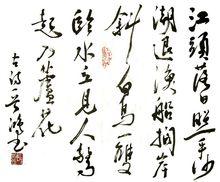 江頭落日照平沙
潮退漁船擱岸
斜白鳥一雙
臨水立見人驚
起入蘆花
古詩